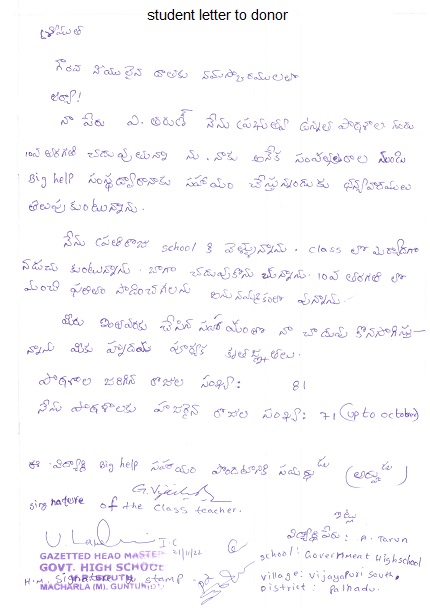 student letter to donor
శ్రీమతి
గౌరవ నీయులైన దాతకు నమస్కారములతో
ఆర్యా!
నా పేరు ఎ. తరుణ్ నేను ప్రభుత్వ ఉన్నత పాఠశాల నందు
10వ తరగతి చదువుతున్నా ను. నాకు అనేక సంవత్సరాల నుండి
Big help సంస్థ ద్వారా నాకు సహాయం చేస్తున్నందుకు ధన్యవాదములు
తెలుపుకుంటున్నాను.
నేను ప్రతిరోజు school కి వెళ్తున్నాను. class లో మర్యాదగా
నడుచు కుంటున్నాను. బాగా చదువుకొను చున్నాను. 10వ తరగతి లో
మంచి ఫలితం సాధించగలను అను నమ్మకంతో వున్నాను.
మీరు ఇంతవరకు చేసిన సహాయంతో నా చదువు కొనసాగిస్తు-
న్నాను మీకు హృదయ పూర్వక కృతజ్ఞతలు.
పాఠశాల జరిగిన రోజుల సంఖ్య: 81
నేను పాఠశాలకు హాజరైన రోజుల సంఖ్య: 71 (up to october)
ఈ విద్యార్థి Big help సహాయం పొందటానికి సమర్థుడు (అర్హుడు)
signature of the class teacher.
ఇట్లు
విద్యార్థి పేరు: A. Tarun
school: Government Highschool
village: Vijayapuri South,
District: Palnadu.
I.C
21/11/22
GAZETTED HEAD MASTER
GOVT. HIGH SCHOOL
H.M. signature & stamp
MACHARLA (M). GUNTUR(D)